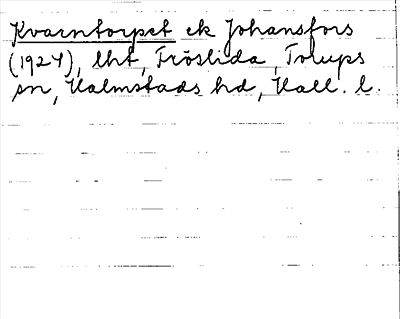 Kvarntorpet ek Johansfors
(1924), lht, Fröslida, Torups
sn, Halmstads hd, Hall. l.